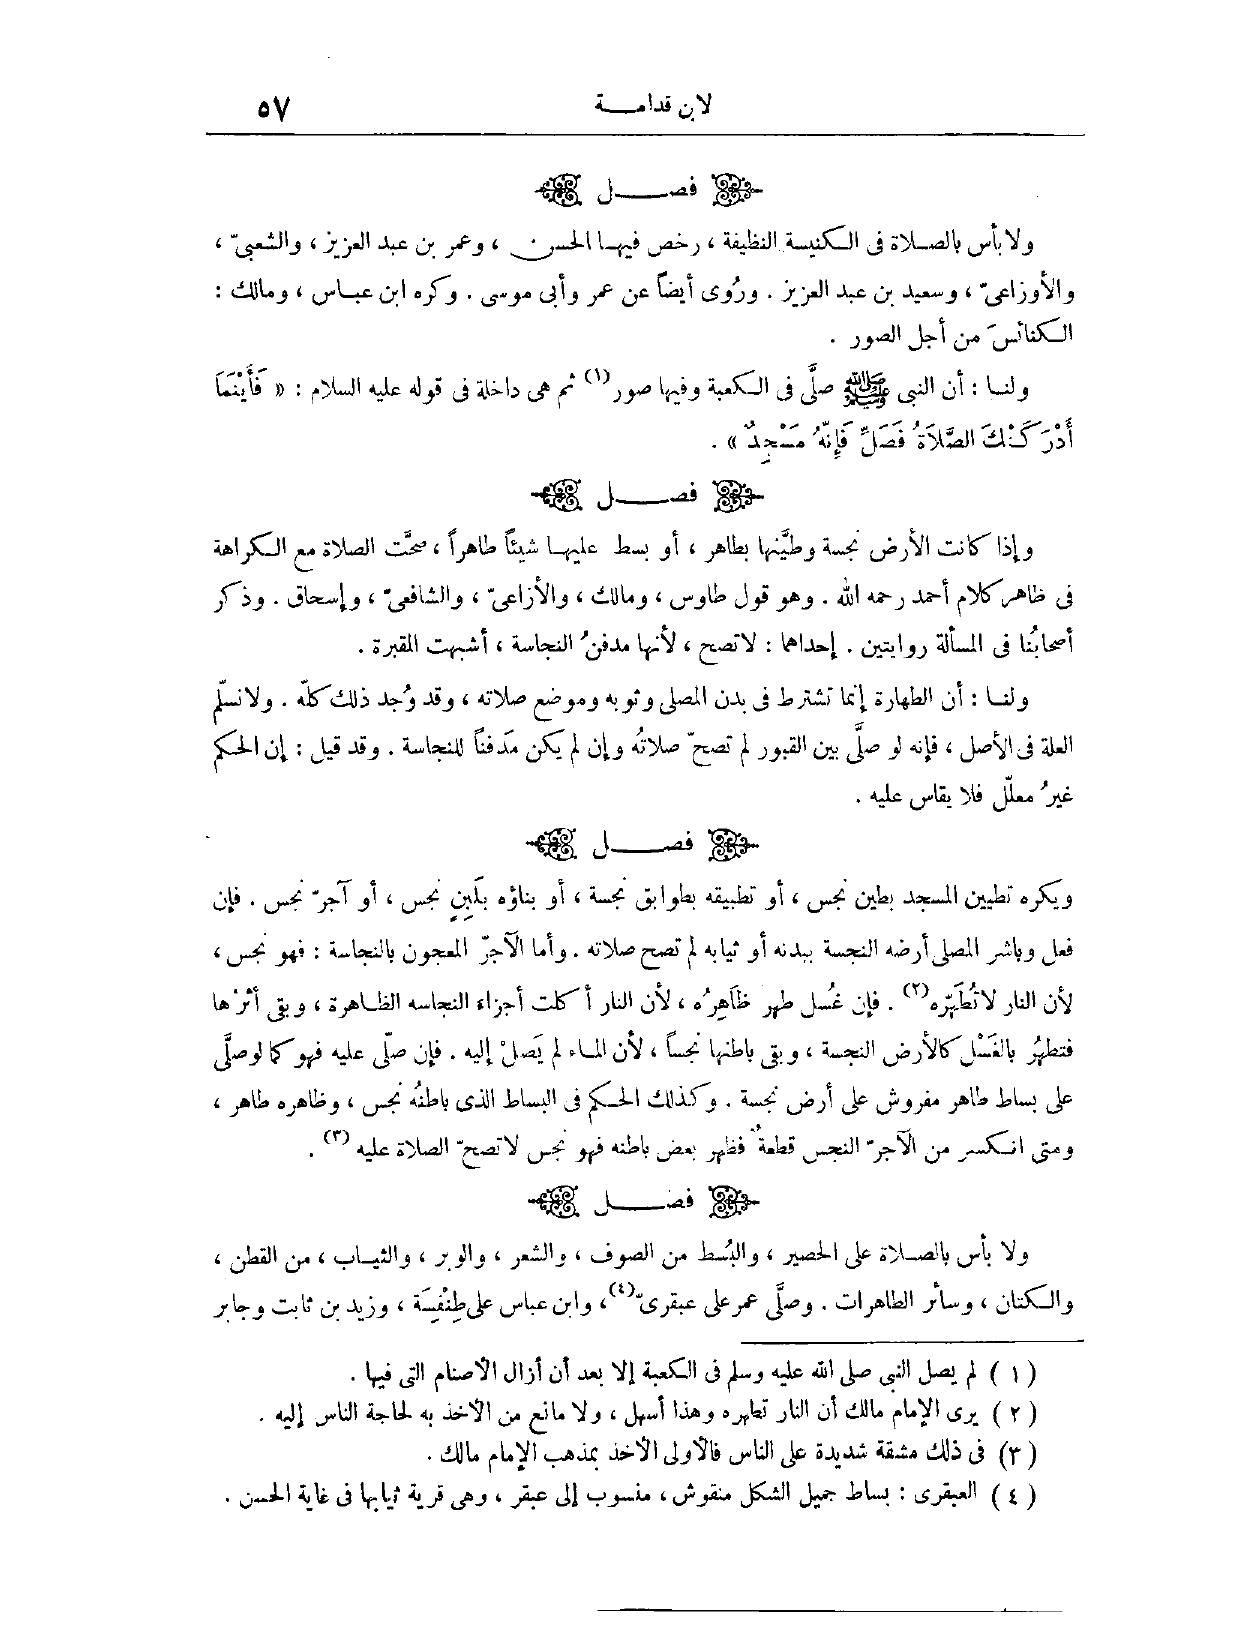 لابن قدامـــة ٥٧
فصـــل
ولا بأس بالصـلاة فى الكنيسة النظيفة ، رخص فيهـا الحسن ، وعمر بن عبد العزيز ، والشعبىّ ،
والأوزاعىّ ، وسعيد بن عبد العزيز . ورُوى أيضاً عن عمر وأبى موسى . وكره ابن عبـاس ، ومالك :
الكنائسَ من أجل الصور .
ولنـا : أن النبى ﷺ صلَّى فى الكعبة وفيها صور (١) ثم هى داخلة فى قوله عليه السلام : « فَأَيْنَمَا
أَدْرَكَتْكَ الصَّلَاةُ فَصَلِّ فَإِنَّهُ مَسْجِدٌ » .
فصـــل
وإذا كانت الأرض نجسة وطيَّنها بطاهر ، أو بسط عليهـا شيئاً طاهراً ، صحَّت الصلاة مع الكراهة
فى ظاهر كلام أحمد رحمه الله . وهو قول طاوس ، ومالك ، والأزاعىّ ، والشافعىّ ، وإسحاق . وذكر
أصحابُنا فى المسألة روايتين . إحداها : لا تصح ، لأنها مدفنُ النجاسة ، أشبهت المقبرة .
ولنـا : أن الطهارة إنما تشترط فى بدن المصلى وثوبه وموضع صلاته ، وقد وُجد ذلك كلّه . ولا نسلّم
العلة فى الأصل ، فإنه لو صلَّى بين القبور لم تصحّ صلاتُه وإن لم يكن مَدفناً للنجاسة . وقد قيل : إن الحكم
غيرُ معلّل فلا يقاس عليه .
فصـــل
ويكره تطيين المسجد بطين نجس ، أو تطبيقه بطوابق نجسة ، أو بناؤه بلَبِنٍ نجس ، أو آجرّ نجس . فإن
فعل وباشر المصلى أرضه النجسة ببدنه أو ثيابه لم تصح صلاته . وأما الآجرّ المعجون بالنجاسة : فهو نجس ،
لأن النار لا تُطَهِّره (٢) . فإن غُسل طهر ظَاهِرُه ، لأن النار أكلت أجزاء النجاسه الظـاهرة ، وبقى أثرْها
فتطهُر بالغَسْل كالأرض النجسة ، وبقى باطنها نجساً ، لأن المـاء لم يَصلْ إليه . فإن صلّى عليه فهو كما لو صلَّى
على بساط طاهر مفروش على أرض نجسة . وكذلك الحكم فى البساط الذى باطنُه نجس ، وظاهره طاهر ،
ومتى انكسر من الآجرّ النجس قطعةٌ فظهر بعض باطنه فهو نجس لا تصحّ الصلاة عليه (٣) .
فصـــل
ولا بأس بالصـلاة على الحصير ، والبُسط من الصوف ، والشعر ، والوبر ، والثيـاب ، من القطن ،
والكتان ، وسائر الطاهرات . وصلَّى عمر على عبقرىّ (٤) ، وابن عباس على طِنْفِسَة ، وزيد بن ثابت وجابر
( ١ ) لم يصل النبى صلى الله عليه وسلم فى الكعبة إلا بعد أن أزال الأصنام التى فيها .
( ٢ ) يرى الإمام مالك أن النار تطهره وهذا أسهل ، ولا مانع من الأخذ به لحاجة الناس إليه .
( ٣) فى ذلك مشقة شديدة على الناس فالأولى الأخذ بمذهب الإمام مالك .
( ٤ ) العبقرى : بساط جميل الشكل منقوش ، منسوب إلى عبقر ، وهى قرية ثيابها فى غاية الحسن .